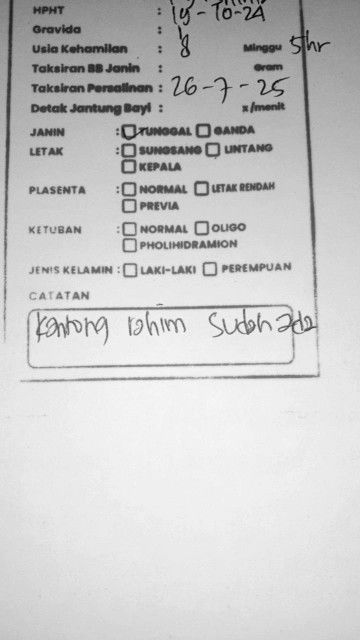 HPHT : 19-10-24
Gravida :
Usia Kehamilan : 8 Minggu 5hr
Taksiran BB Janin : Gram
Taksiran Persalinan : 26-7-25
Detak Jantung Bayi : x/menit
JANIN : TUNGGAL GANDA
LETAK : SUNGSANG LINTANG
KEPALA
PLASENTA : NORMAL LETAK RENDAH
PREVIA
KETUBAN : NORMAL OLIGO
PHOLIHIDRAMION
JENIS KELAMIN : LAKI-LAKI PEREMPUAN
CATATAN
Kantong rahim sudah ada